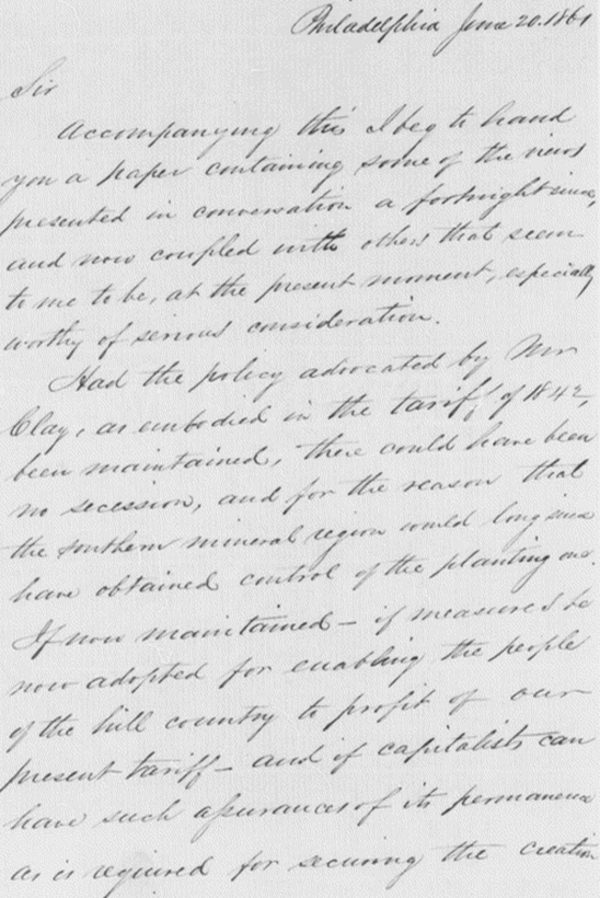 Philadelphia June 20. 1861
Sir
Accompanying this I beg to hand
you a paper containing some of the views
presented in conversation a fortnight since,
and now coupled with others that seem
to me to be, at the present moment, especially
worthy of serious consideration.
Had the policy advocated by Mr
Clay, as embodied in the tariff of 1842,
been maintained, there could have been
no secession, and for the reason that
the southern mineral region would long since
have obtained control of the planting one.
If now maintained – if measures be
now adopted for enabling the people
of the hill country to profit of our
present tariff – and if capitalists can
have such assurances of its permanence
as is required for securing the creation